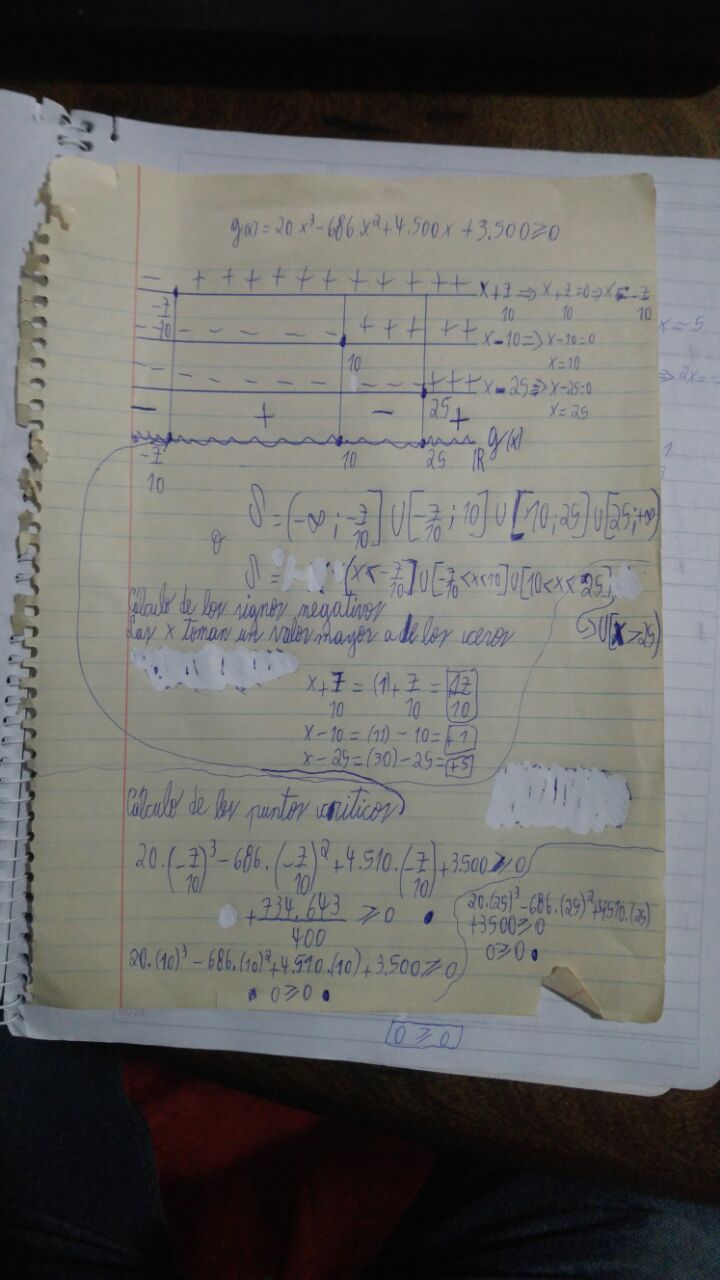 g(x) = 20x³-686x²+4.500x+3.500≥0
- + + + + + + + + + + + x+7/10 ⇒ x+7/10=0 ⇒ x=-7/10
-7/10 - - - - - - + + + + + x-10 ⇒ x-10=0
10 x=10
- - - - - - - - - + + + x-25 ⇒ x-25=0
- + - 25 + x=25
-7/10 10 25 ℝ g(x)
S = (-∞; -7/10] ∪ [-7/10; 10] ∪ [10; 25] ∪ [25; +∞)
o
S = (x<-7/10] ∪ [-7/10<x<10] ∪ [10<x< 25]
∪[x≥25)
Cálculo de los signos negativos
Las x toman un valor mayor a de los ceros
x+7/10 = (1)+7/10 = 17/10
x-10 = (11)-10 = +1
x-25 = (30)-25 = +5
Cálculo de los puntos criticos
20.(-7/10)³-686.(-7/10)²+4.510.(-7/10)+3.500≥0
+734.643/400 ≥0 •
20.(10)³-686.(10)²+4.510.(10)+3.500≥0
• 0≥0 •
20.(25)³-686.(25)²+4510.(25)
+3500≥0
0≥0 •
0 ≥ 0
x=5
⇒ 2x=-